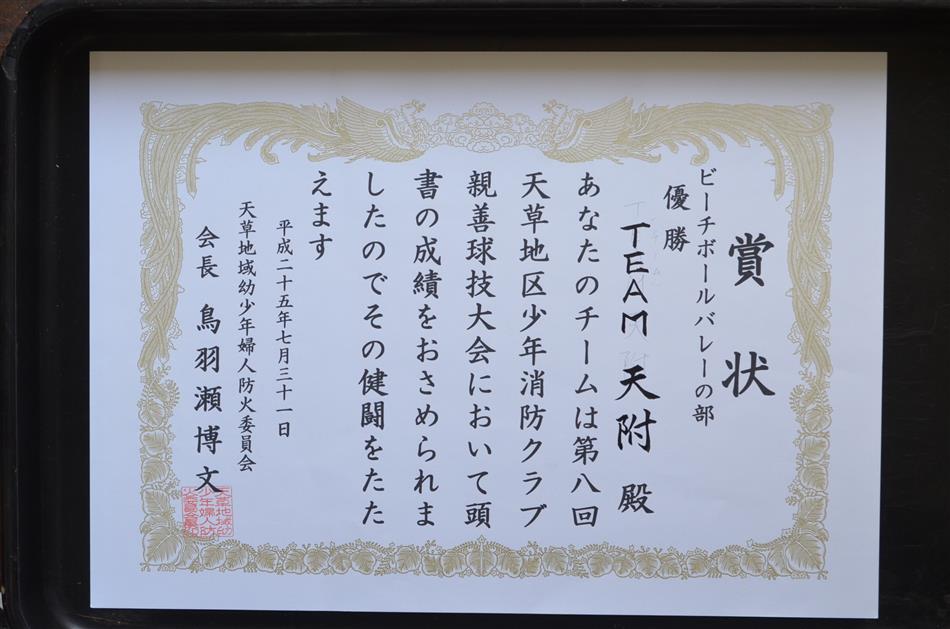 賞状
ビーチボールバレーの部
優勝
TEAM 天附 殿
あなたのチームは第八回
天草地区少年消防クラブ
親善球技大会において頭
書の成績をおさめられま
したのでその健闘をたた
えます
平成二十五年七月三十一日
天草地域幼少年婦人防火委員会
会長 鳥羽瀬博文
天草地域幼
少年婦人防
火委員会長印